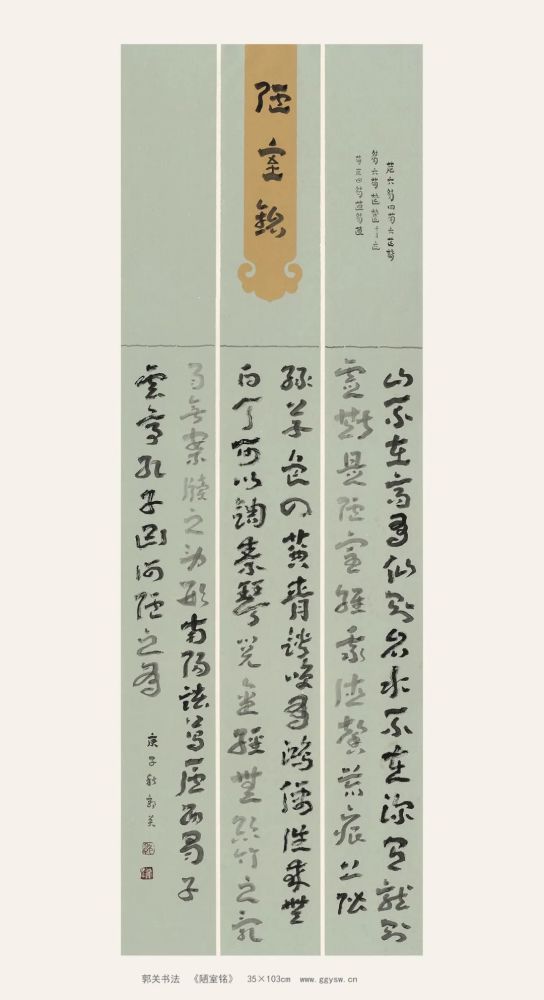 陋室銘
山不在高有仙則名水不在深有龍則
靈斯是陋室維吾德馨苔痕上階
綠草色入簾青談笑有鴻儒往來無
白丁可以調素琴閱金經無絲竹之亂
耳無案牘之勞形南陽諸葛廬西蜀子
雲亭孔子曰何陋之有
庚子秋郭关
郭关书法 《陋室铭》 35×103cm www.ggysw.cn